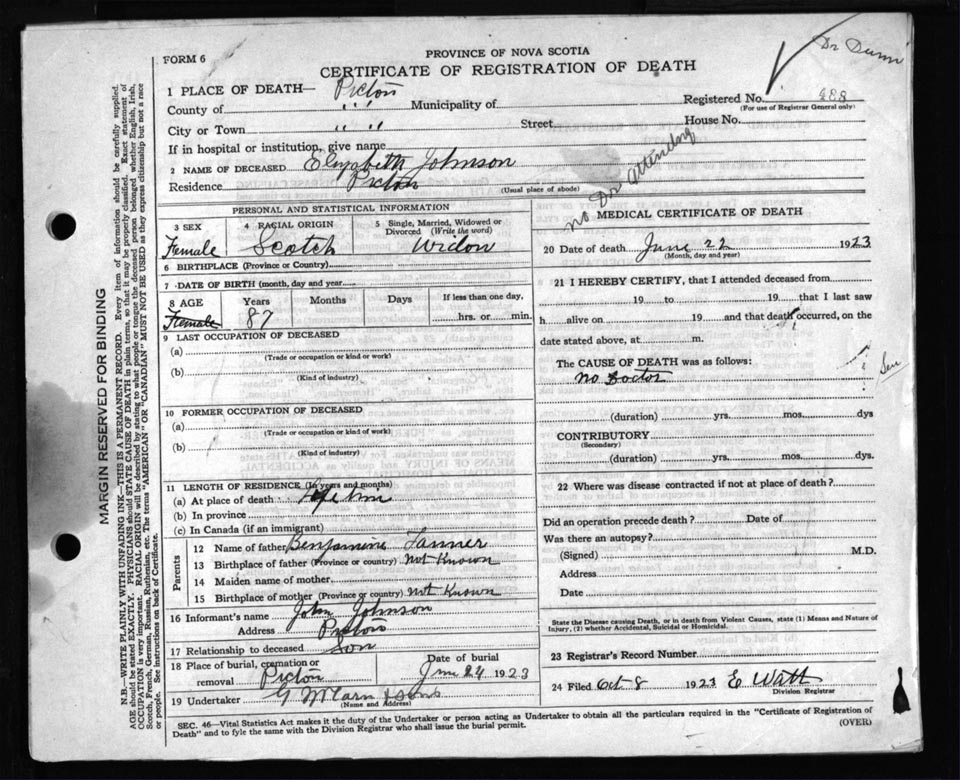 Dr Dunn
PROVINCE OF NOVA SCOTIA
FORM 6
CERTIFICATE OF REGISTRATION OF DEATH
1 PLACE OF DEATH— Pictou
County of " " Municipality of
Registered No. 488
(For use of Registrar General only)
City or Town " " Street House No.
If in hospital or institution, give name
2 NAME OF DECEASED Elizabeth Johnson
Residence Pictou (Usual place of abode)
No Dr attending
PERSONAL AND STATISTICAL INFORMATION
3 SEX Female
4 RACIAL ORIGIN Scotch
5 Single, Married, Widowed or Divorced (Write the word) Widow
6 BIRTHPLACE (Province or Country)
7 DATE OF BIRTH (month, day and year)
8 AGE Years Months Days If less than one day,
Female 87 hrs. or min.
9 LAST OCCUPATION OF DECEASED
(a)
(Trade or occupation or kind or work)
(b)
(Kind of industry)
10 FORMER OCCUPATION OF DECEASED
(a)
(Trade or occupation or kind of work)
(b)
(Kind of industry)
11 LENGTH OF RESIDENCE (In years and months)
(a) At place of death Life time
(b) In province
(c) In Canada (if an immigrant)
Parents
12 Name of father Benjamine Tanner
13 Birthplace of father (Province or country) Not Known
14 Maiden name of mother
15 Birthplace of mother (Province or country) Not Known
16 Informant's name John Johnson
Address Pictou
17 Relationship to deceased Son
18 Place of burial, cremation or removal Pictou
Date of burial June 24 1923
19 Undertaker G McCarn & Sons
(Name and Address)
MEDICAL CERTIFICATE OF DEATH
20 Date of death June 22 1923
(Month, day and year)
21 I HEREBY CERTIFY, that I attended deceased from
19 to 19 that I last saw
h alive on 19 and that death occurred, on the
date stated above, at m.
The CAUSE OF DEATH was as follows:
no Doctor
Sen
(duration) yrs. mos. dys
CONTRIBUTORY
(Secondary)
(duration) yrs. mos. dys.
22 Where was disease contracted if not at place of death?
Did an operation precede death? Date of
Was there an autopsy?
(Signed) M.D.
Address
Date
State the Disease causing Death, or in death from Violent Causes, state (1) Means and Nature of
Injury, (2) whether Accidental, Suicidal or Homicidal.
23 Registrar's Record Number
24 Filed Oct 8 1923 E Watt
Division Registrar
SEC. 46—Vital Statistics Act makes it the duty of the Undertaker or person acting as Undertaker to obtain all the particulars required in the "Certificate of Registration of
Death" and to fyle the same with the Division Registrar who shall issue the burial permit.
(OVER)
MARGIN RESERVED FOR BINDING
N.B.—WRITE PLAINLY WITH UNFADING INK—THIS IS A PERMANENT RECORD. Every item of information should be carefully supplied.
AGE should be stated EXACTLY. PHYSICIANS should STATE CAUSE OF DEATH in plain terms, so that it may be properly classified. Exact statement of
OCCUPATION is very important. RACIAL ORIGIN will be described by stating to what people or tongue the deceased person belonged whether English, Irish,
Scotch, French, German, Russian, Ruthenian, etc. The terms "AMERICAN" or "CANADIAN" MUST NOT BE USED as they express citizenship but not a race
or people. See instructions on back of Certificate.